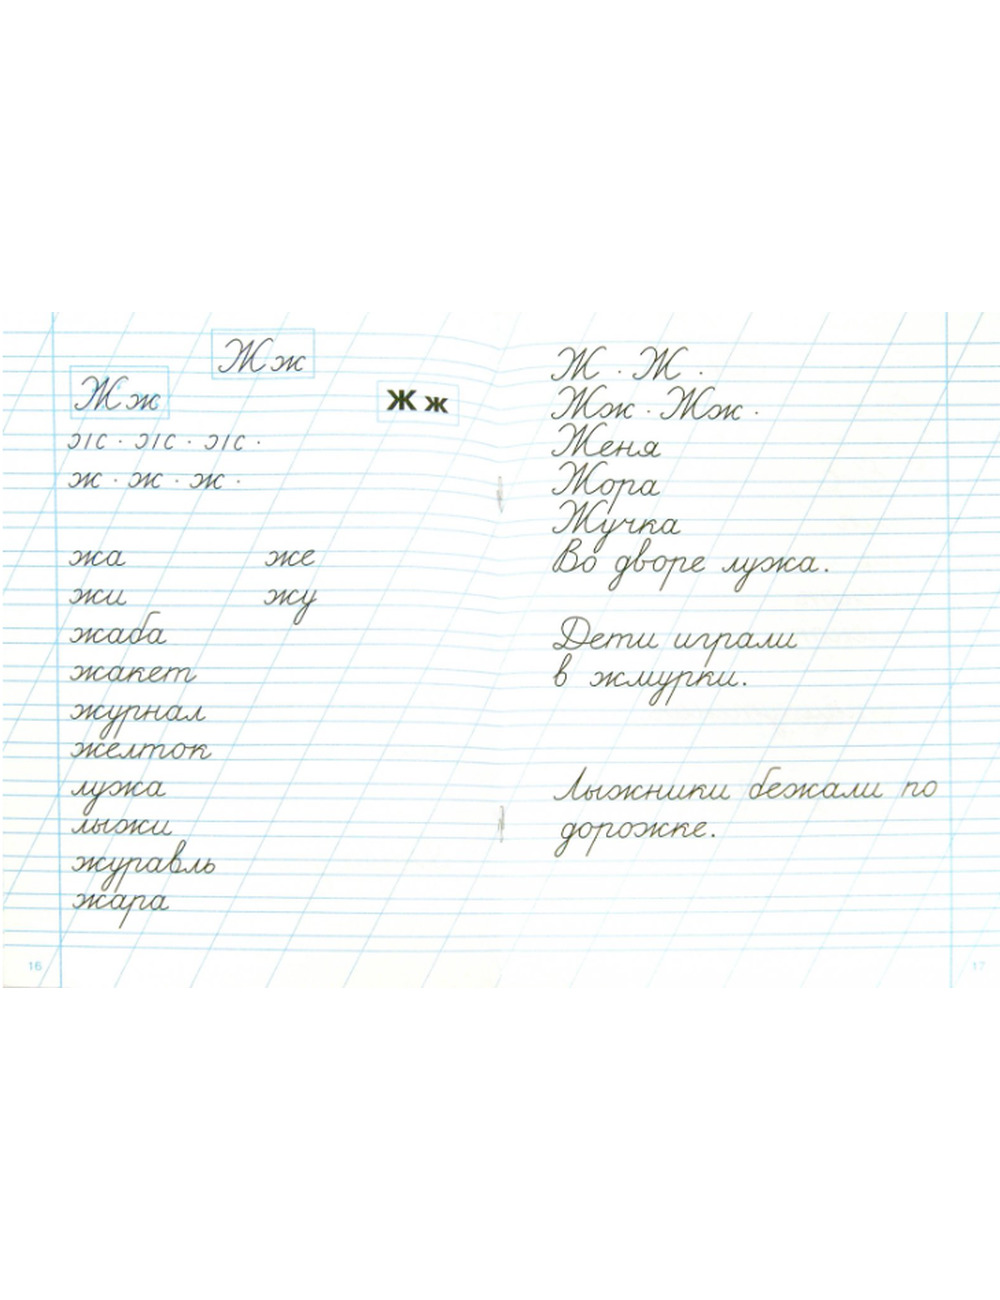 Ж ж
Ж ж
Ж ж
ж · ж · ж ·
жа же
жи жу
жаба
жакет
журнал
желток
лужа
лыжи
журавль
жара
16
Ж · Ж ·
Жж · Жж ·
Женя
Жора
Жучка
Во дворе лужа.
Дети играли
в жмурки.
Лыжники бежали по
дорожке.
17